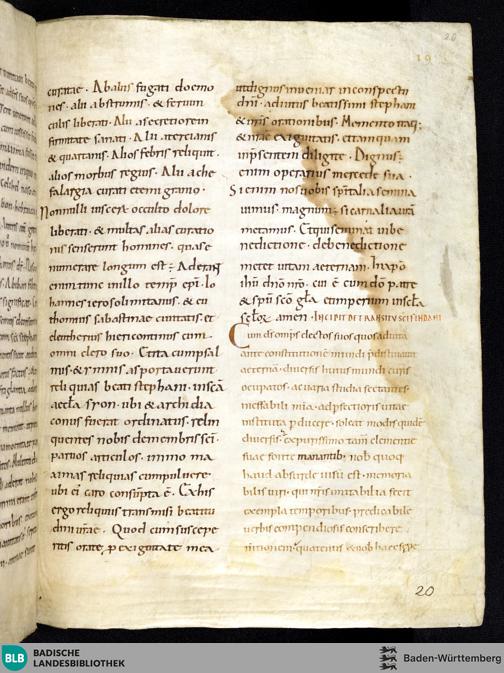 20
19
curatae. Abaliis fugati doemo
nes. alii abstomis. & seruin
culis liberati. Alii asecretiorem
firmitate sanati. Alii atercianis
& quartanis. Alios febris reliquit.
alios morbus regius. Alii ache
falargia curati etemi granio.
Nonnulli uiscere occulto dolore
liberati. & multas alias curatio
nes senserunt homines. quas e
numerare longum est;
enim tunc in illo temp epi. Io
hannes ierosolimitanus. & eu
thomius sabastinae ciuitatis. et
eleutherius hiericontinus cum
omni clero suo. Et ita cumpsal
mis. & ymnis asportauerunt
reliquias beati stephani. inscã
aeclã syon. ubi & archidia
conus fuerat ordinatus. relin
quentes nobis demembris sci
paruos articulos. immo ma
ximas reliquias cumpuluere.
ubi ei caro consupta ẽ. Ex his
ergo reliquias transmisi beatitu
dini urae. Quod cum suscepe
ritis orate pexiguitate mea
utdignus inueniar inconspectu
dni. adiutus beatissimi stephani
& uris orationibus. Memento
& meae exiguitatis. &tamquam
inpsentem diligite. Dignus
enim operarius mercede sua.
Si enim nos uobis spitalia semina
uimus. magnum; si carnalia ura
metamus. Et qui seminat inbe
nedictione. debenedictione
metet uitam aeternam. Inxpo
ihu dno nro. cui ẽ cum do patre
& spu sco gla. et imperium inscla
sclor. amen. INCIPIT DE TRANSITU SCI
Cum ds omps electos suos quos adiuta
ante constitutione mundi pdistinauit
aeternã. diuersis huius mundi curis
ocupatos. ac uaria studia sectantes.
ineffabili mia. adpfectioris uitae
instituta pducere. soleat modis quidẽ
diuersis. expurissimo tam clementie
suae fonte manantib; nob quoq;
haud absurde uisu est. memora
bilis uiri. qui nris mirabilia fecit
exempla temporibus. predicabile
uerbis compendiosis conscribere
20
BLB
BADISCHE
LANDESBIBLIOTHEK
Baden-Württemberg